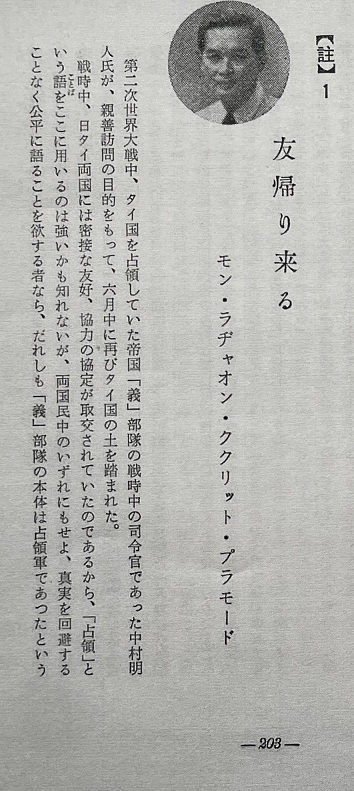 【註】1
友帰り来る
モン・ラヂャオン・ククリット・プラモード
第二次世界大戦中、タイ国を占領していた帝国「義」部隊の戦時中の司令官であった中村明
人氏が、親善訪問の目的をもって、六月中に再びタイ国の土を踏まれた。
戦時中、日タイ両国には密接な友好、協力の協定が取交されていたのであるから、「占領」と
いう語をここに用いるのは強いかも知れないが、両国民中のいずれにもせよ、真実を回避する
ことば
ことなく公平に語ることを欲する者なら、だれしも「義」部隊の本体は占領軍であつたという
—203—